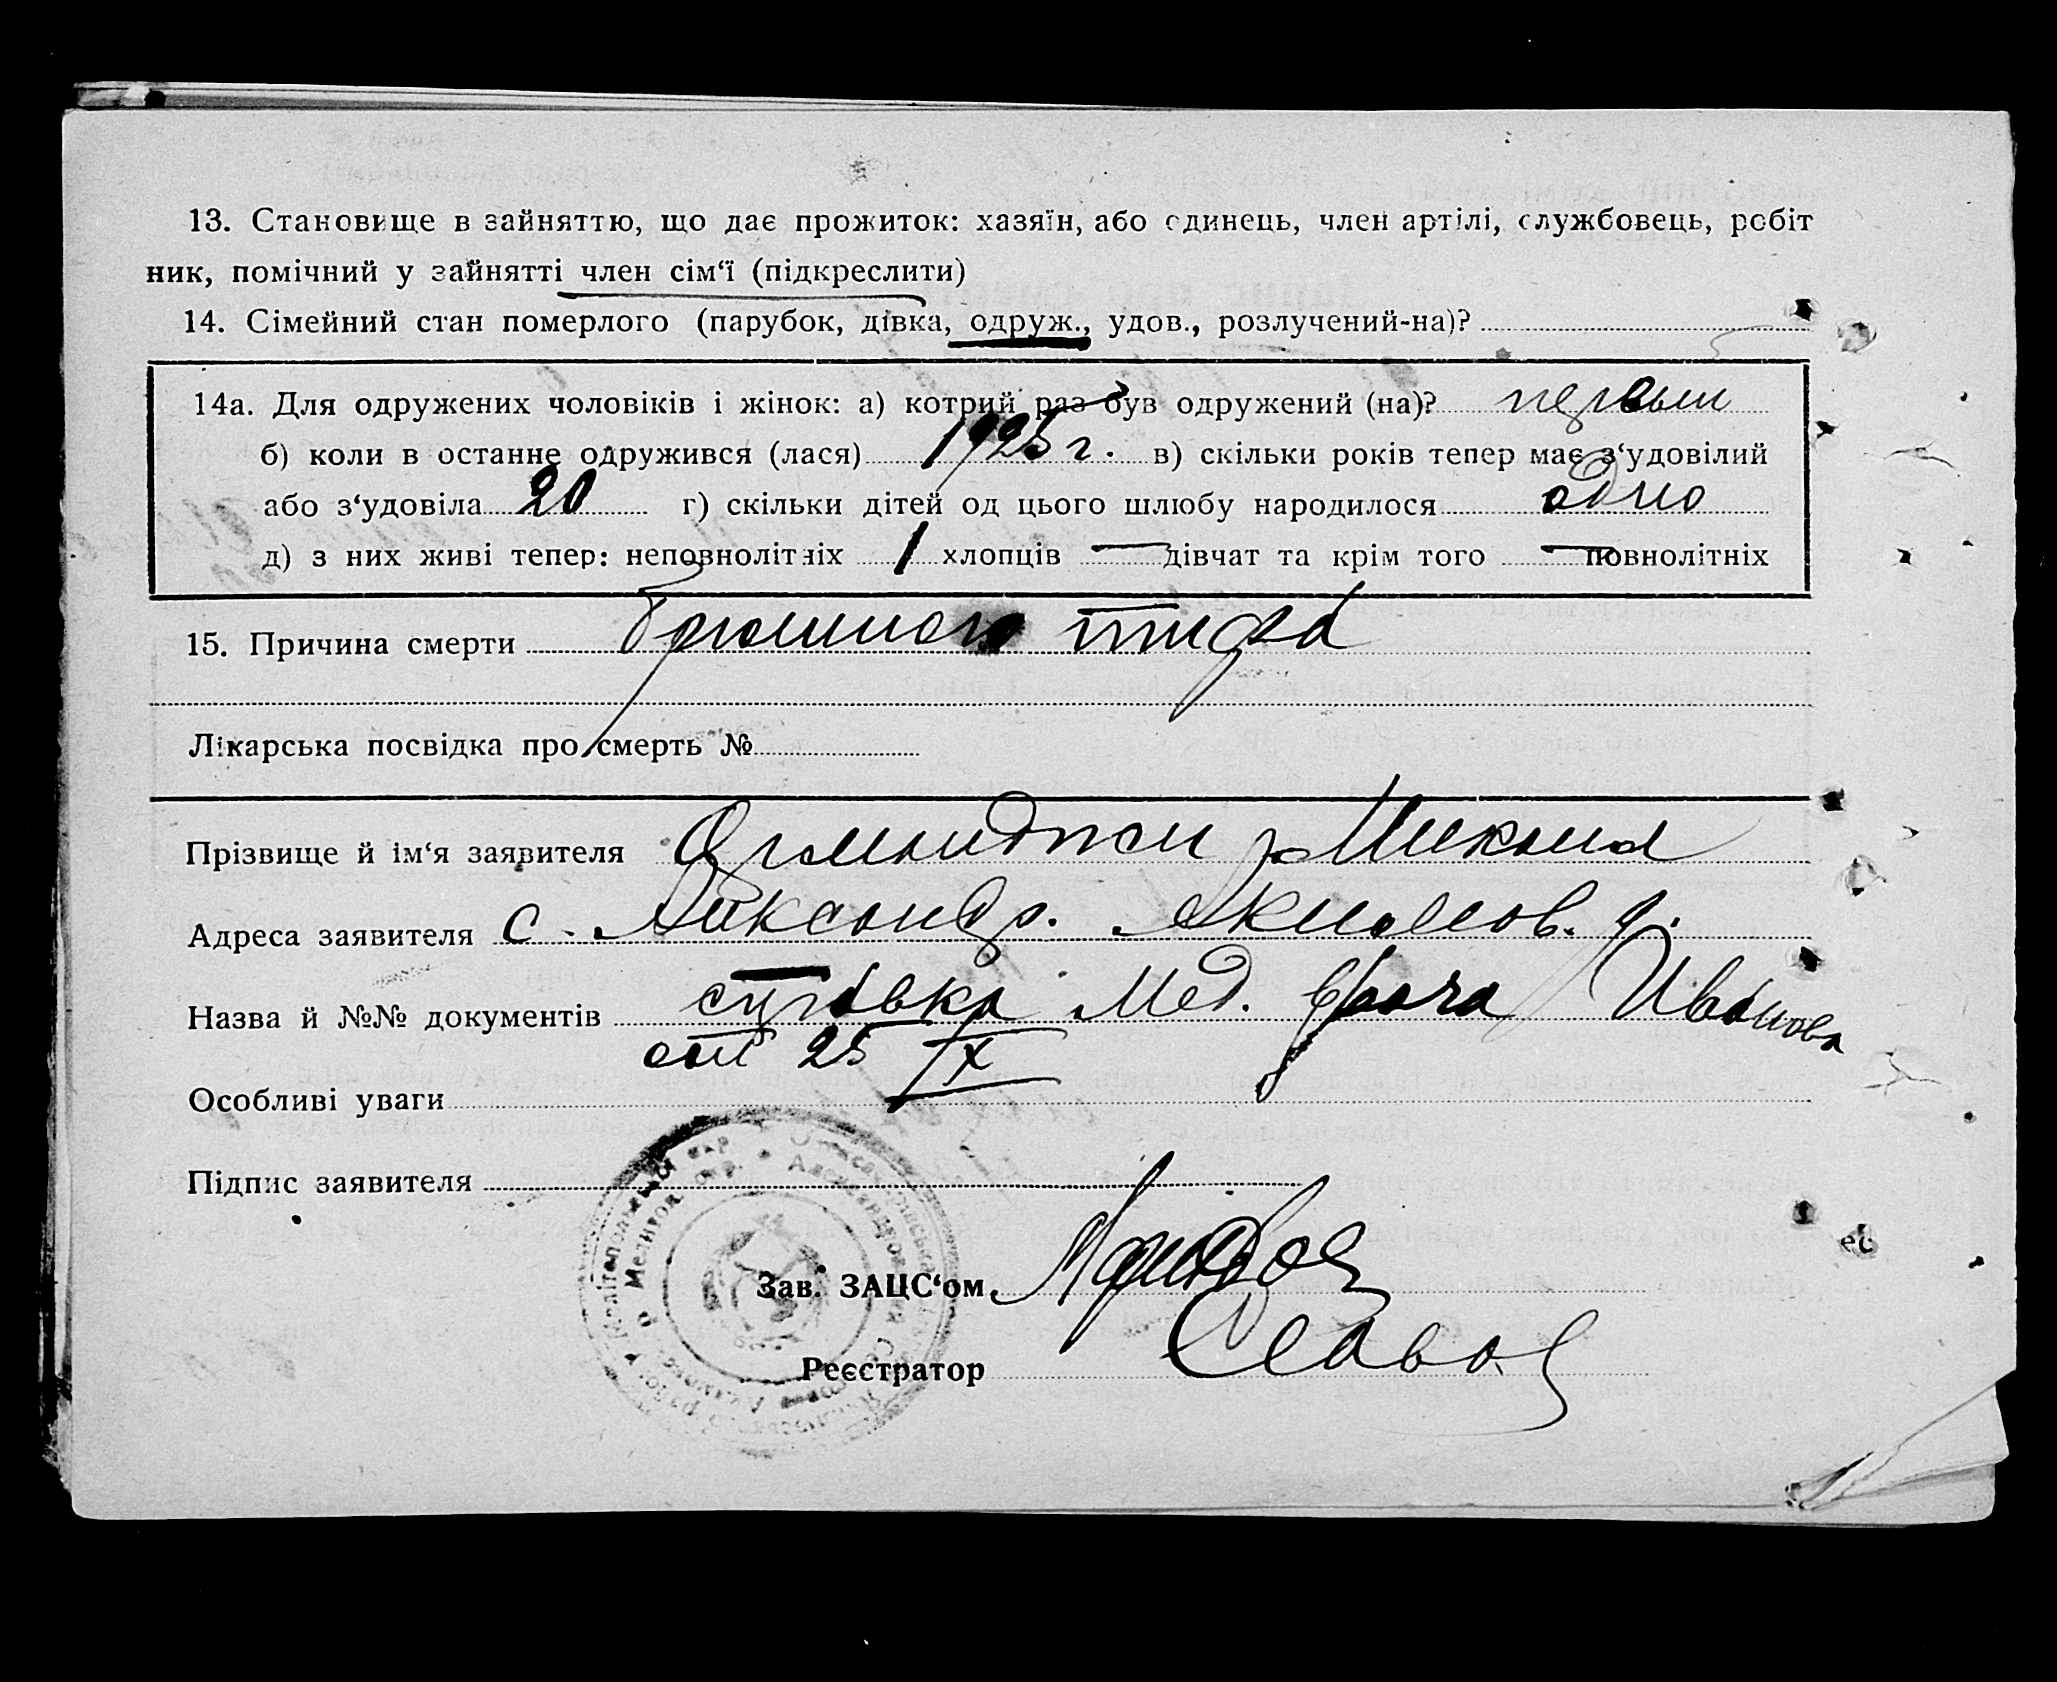 13. Становище в зайняттю, що дає прожиток: хазяїн, або єдинець, член артілі, службовець, робіт
ник, помічний у зайнятті член сім‘ї (підкреслити)
14. Сімейний стан померлого (парубок, дівка, одруж., удов., розлучений-на)?
14а. Для одружених чоловіків і жінок: а) котрий раз був одружений (на)? первый
б) коли в останнє одружився (лася) 1925 г. в) скільки років тепер має з‘удовілий
або з‘удовіла 20 г) скільки дітей од цього шлюбу народилося одно
д) з них живі тепер: неповнолітніх 1 хлопців — дівчат та крім того — повнолітніх
15. Причина смерти брюшного тифа
Лікарська посвідка про смерть №
Прізвище й ім‘я заявителя Михаил
Адреса заявителя с. Александр. Акимов. р.
Назва й №№ документів справка Мед. врача Иванова
от 25 IX
Особливі уваги
Підпис заявителя
Зав. ЗАЦС‘ом
Реєстратор